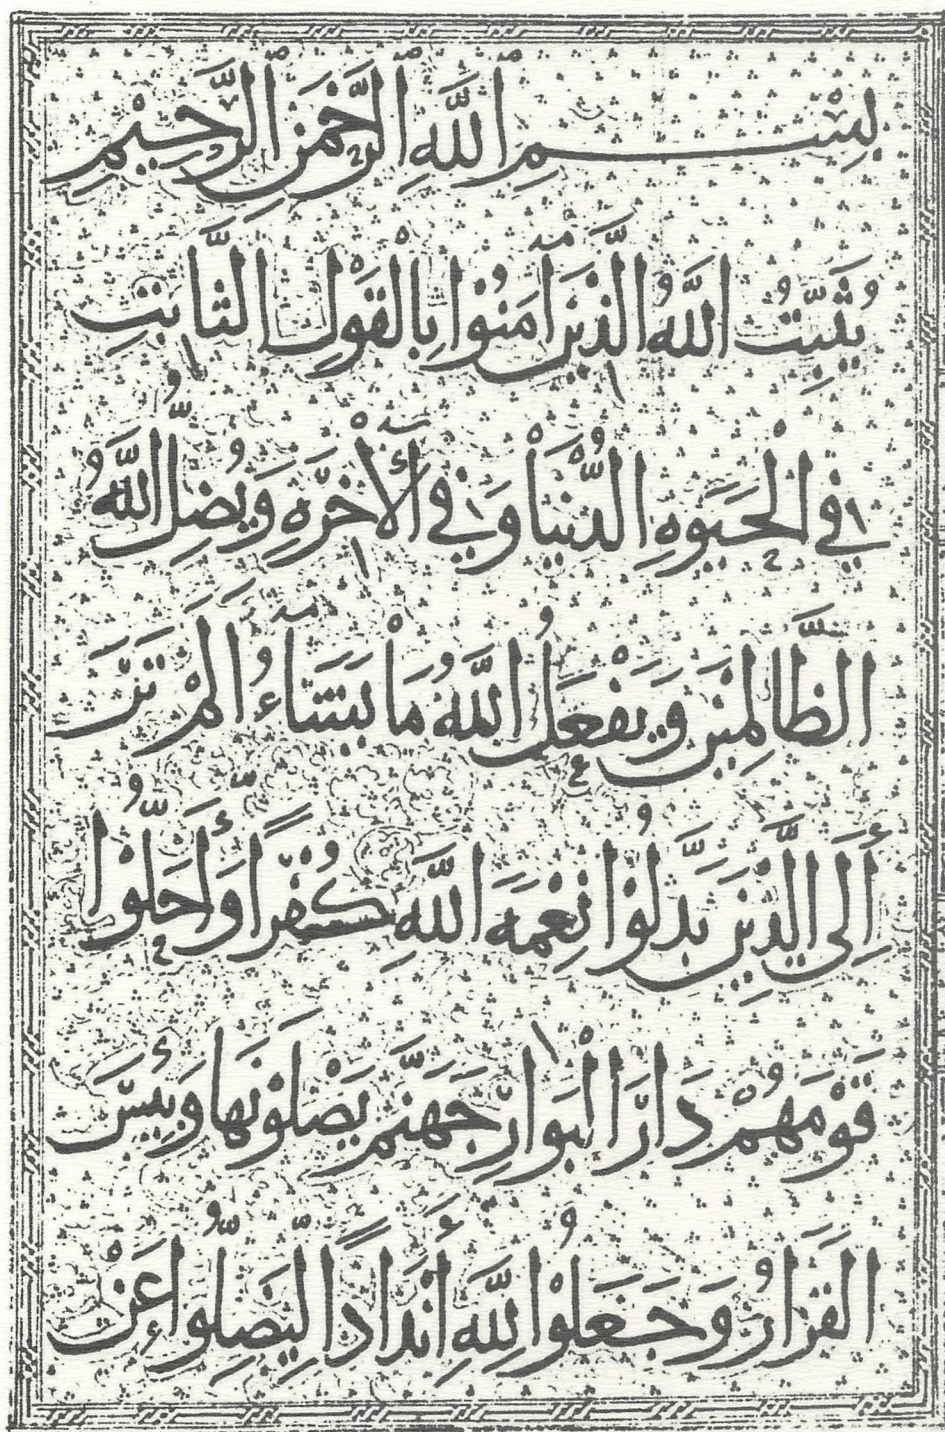 بِسْمِ اللَّهِ الرَّحْمَنِ الرَّحِيمِ
يُثَبِّتُ اللَّهُ الَّذِينَ آمَنُوا بِالْقَوْلِ الثَّابِتِ
فِي الْحَيَوةِ الدُّنْيَا وَفِي الْأَخِرَةِ وَيُضِلُّ اللَّهُ
الظَّالِمِينَ وَيَفْعَلُ اللَّهُ مَا يَشَاءُ أَلَمْ تَرَ
إِلَى الَّذِينَ بَدَّلُوْا نِعْمَةَ اللَّهِ كُفْرًا وَأَحَلُّوْا
قَوْمَهُمْ دَارَ الْبَوَارِ جَهَنَّمَ يَصْلَوْنَهَا وَبِئْسَ
الْقَرَارُ وَجَعَلُوْا لِلَّهِ أَنْدَادًا لِيُضِلُّوا عَنْ